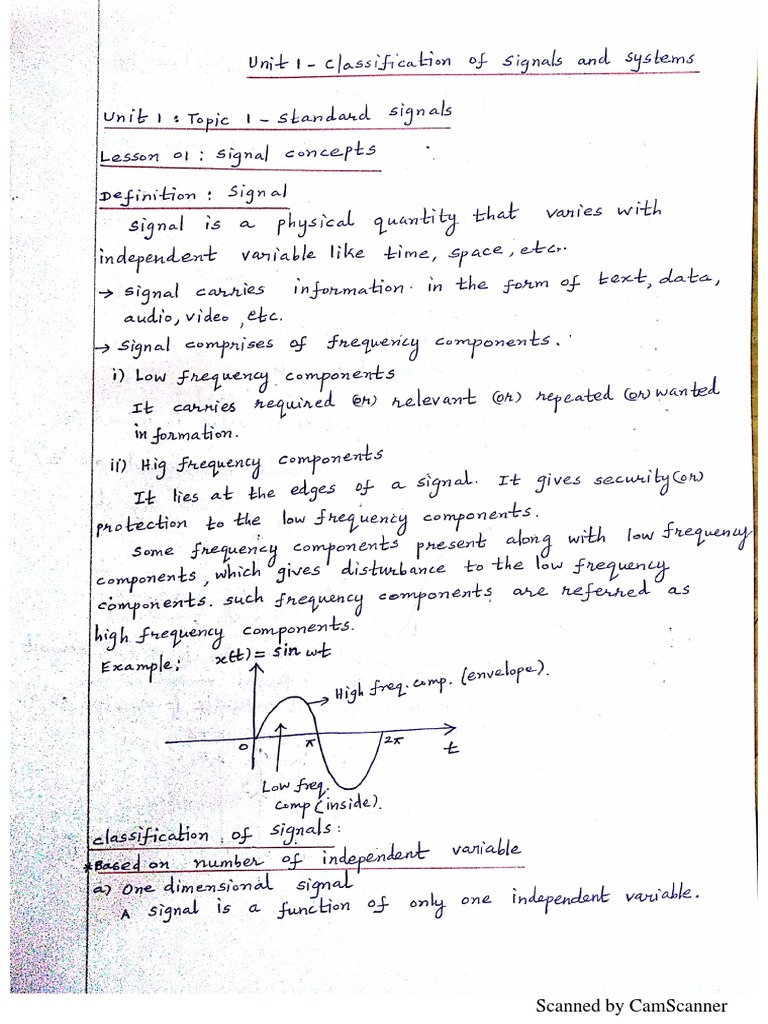 Unit 1 - Classification of signals and systems
Unit 1 : Topic 1 - Standard signals
Lesson 01 : Signal concepts
Definition : Signal
Signal is a physical quantity that varies with
independent variable like time, space, etc..
→ Signal carries information in the form of text, data,
audio, video, etc.
→ Signal comprises of frequency components.
i) Low frequency components
It carries required (or) relevant (or) repeated (or) wanted
information.
ii) Hig frequency components
It lies at the edges of a signal. It gives security (or)
protection to the low frequency components.
Some frequency components present along with low frequency
components, which gives disturbance to the low frequency
components. such frequency components are referred as
high frequency components.
Example: x(t) = sin wt
→ High freq. comp. (envelope).
0 π 2π t
Low freq.
comp (inside).
Classification of signals:
*Based on number of independent variable
a) One dimensional signal
A signal is a function of only one independent variable.
Scanned by CamScanner